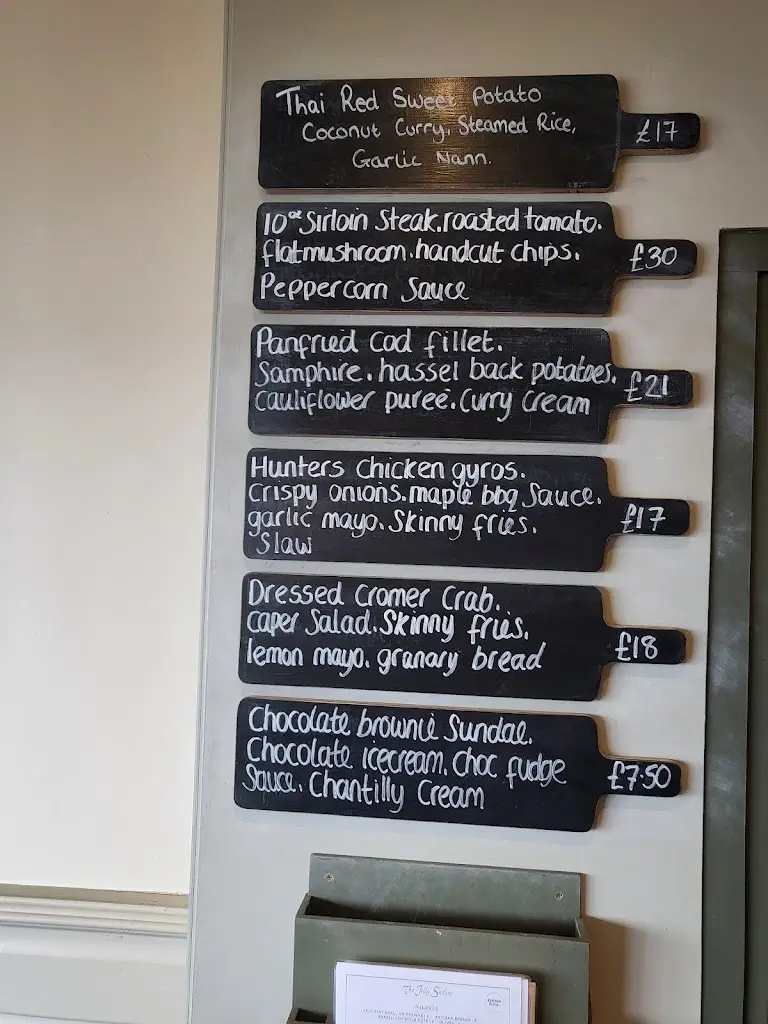 Thai Red Sweet Potato
Coconut Curry, Steamed Rice,
Garlic Nann.
£17
10oz Sirloin Steak.roasted tomato.
flatmushroom.handcut chips.
Peppercorn Sauce
£30
Panfried Cod fillet.
Samphire. hassel back potatoes.
Cauliflower puree.Curry Cream
£21
Hunters chicken gyros.
Crispy onions.maple bbq Sauce.
garlic mayo. Skinny fries.
Slaw
£17
Dressed Cromer Crab.
caper Salad.Skinny fries.
lemon mayo. granary bread
£18
Chocolate brownie Sundae.
Chocolate icecream. Choc fudge
Sauce. Chantilly Cream
£7.50
The Jolly Sailors